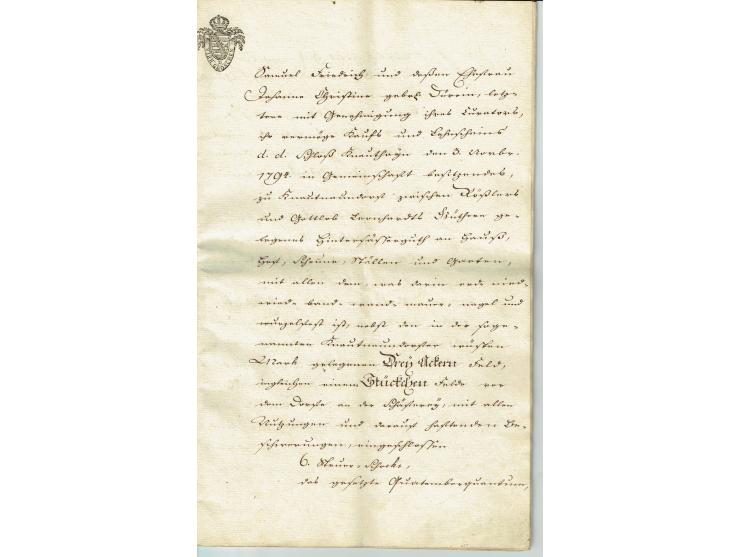 Samuel Friedrich und deßen Ehefrau
Johanne Christine gebh. Dörrin, letz-
tere mit Genehmigung ihres Curators,
ihr vermöge Kaufs und Lehnscheins
d. d. Schloß Knauthayn den 3. Novbr.
1794. in Gemeinschaft besitzendes,
zu Knautnaundorf zwischen Rößlers
und Gottlob Leonhardts Güthern ge-
legenes Hintersäßerguth an Hauß,
Hof, Scheune, Ställen und Garten,
mit allen dem, was darin erd- nied-
wied- band- wand- mauer- nagel und
wurzelfest ist, nebst den in der soge-
nannten Knautnaundorfer wüsten
Mark gelegenen Drey Ackern Feld,
ingleichen einem Stückchen Felde vor
dem Dorfe an der Schäferey, mit allen
Nutzungen und darauf haftenden Be-
schwerungen, eingeschlossen
6. Steuer-Schocke,
das gesetzte Quatemberquantum,